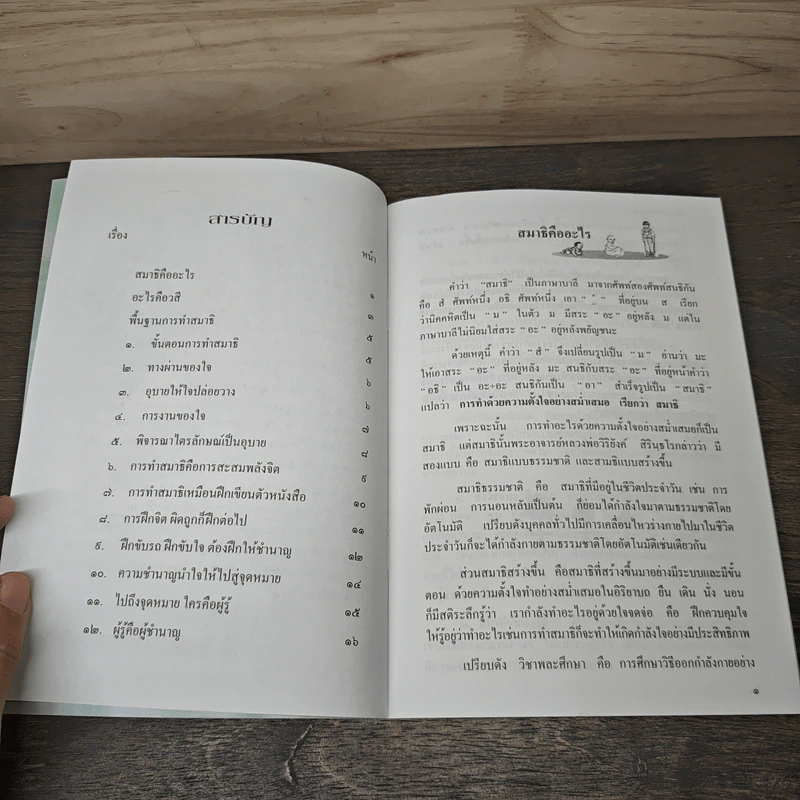 สารบัญ
เรื่อง
หน้า
สมาธิคืออะไร ๑
อะไรคือวสี ๓
พื้นฐานการทำสมาธิ ๕
๑. ขั้นตอนการทำสมาธิ ๕
๒. ทางผ่านของใจ ๖
๓. อุบายให้ใจปล่อยวาง ๖
๔. การงานของใจ ๗
๕. พิจารณาไตรลักษณ์เป็นอุบาย ๘
๖. การทำสมาธิคือการสะสมพลังจิต ๙
๗. การทำสมาธิเหมือนฝึกเขียนตัวหนังสือ ๑๐
๘. การฝึกจิต ผิดถูกก็ฝึกต่อไป ๑๑
๙. ฝึกขับรถ ฝึกขับใจ ต้องฝึกให้ชำนาญ ๑๒
๑๐. ความชำนาญนำใจให้ไปสู่จุดหมาย ๑๔
๑๑. ไปถึงจุดหมาย ใครคือผู้รู้ ๑๕
๑๒. ผู้รู้คือผู้ชำนาญ ๑๖
สมาธิคืออะไร
คำว่า "สมาธิ" เป็นภาษาบาลี มาจากศัพท์สองศัพท์สนธิกัน
คือ สํ ศัพท์หนึ่ง อธิ ศัพท์หนึ่ง เอา " ํ " ที่อยู่บน ส เรียก
ว่านิคคหิตเป็น "ม" ในตัว ม มีสระ "อะ" อยู่หลัง ม แต่ใน
ภาษาบาลีไม่นิยมใส่สระ "อะ" อยู่หลังพยัญชนะ
ด้วยเหตุนี้ คำว่า "สํ" จึงเปลี่ยนรูปเป็น "ม" อ่านว่า มะ
ให้เอาสระ "อะ" ที่อยู่หลัง มะ สนธิกับสระ "อะ" ที่อยู่หน้าคำว่า
"อธิ" เป็น อะ+อะ สนธิกันเป็น "อา" สำเร็จรูปเป็น "สมาธิ"
แปลว่า การทำด้วยความตั้งใจอย่างสม่ำเสมอ เรียกว่า สมาธิ
เพราะฉะนั้น การทำอะไรด้วยความตั้งใจอย่างสม่ำเสมอก็เป็น
สมาธิ แต่สมาธินั้นพระอาจารย์หลวงพ่อวิริยังค์ สิรินฺธโรกล่าวว่า มี
สองแบบ คือ สมาธิแบบธรรมชาติ และสามธิแบบสร้างขึ้น
สมาธิธรรมชาติ คือ สมาธิที่มีอยู่ในชีวิตประจำวัน เช่น การ
พักผ่อน การนอนหลับเป็นต้น ก็ย่อมได้กำลังใจมาตามธรรมชาติโดย
อัตโนมัติ เปรียบดังบุคคลทั่วไปมีการเคลื่อนไหวร่างกายไปมาในชีวิต
ประจำวันก็จะได้กำลังกายตามธรรมชาติโดยอัตโนมัติเช่นเดียวกัน
ส่วนสมาธิสร้างขึ้น คือสมาธิที่สร้างขึ้นมาอย่างมีระบบและมีขั้น
ตอน ด้วยความตั้งใจทำอย่างสม่ำเสมอในอิริยาบถ ยืน เดิน นั่ง นอน
ก็มีสติระลึกรู้ว่า เรากำลังทำอะไรอยู่ด้วยใจจดจ่อ คือ ฝึกควบคุมใจ
ให้รู้อยู่ว่าทำอะไรเช่นการทำสมาธิก็จะทำให้เกิดกำลังใจอย่างมีประสิทธิภาพ
เปรียบดัง วิชาพละศึกษา คือ การศึกษาวิธีออกกำลังกายอย่าง
๑